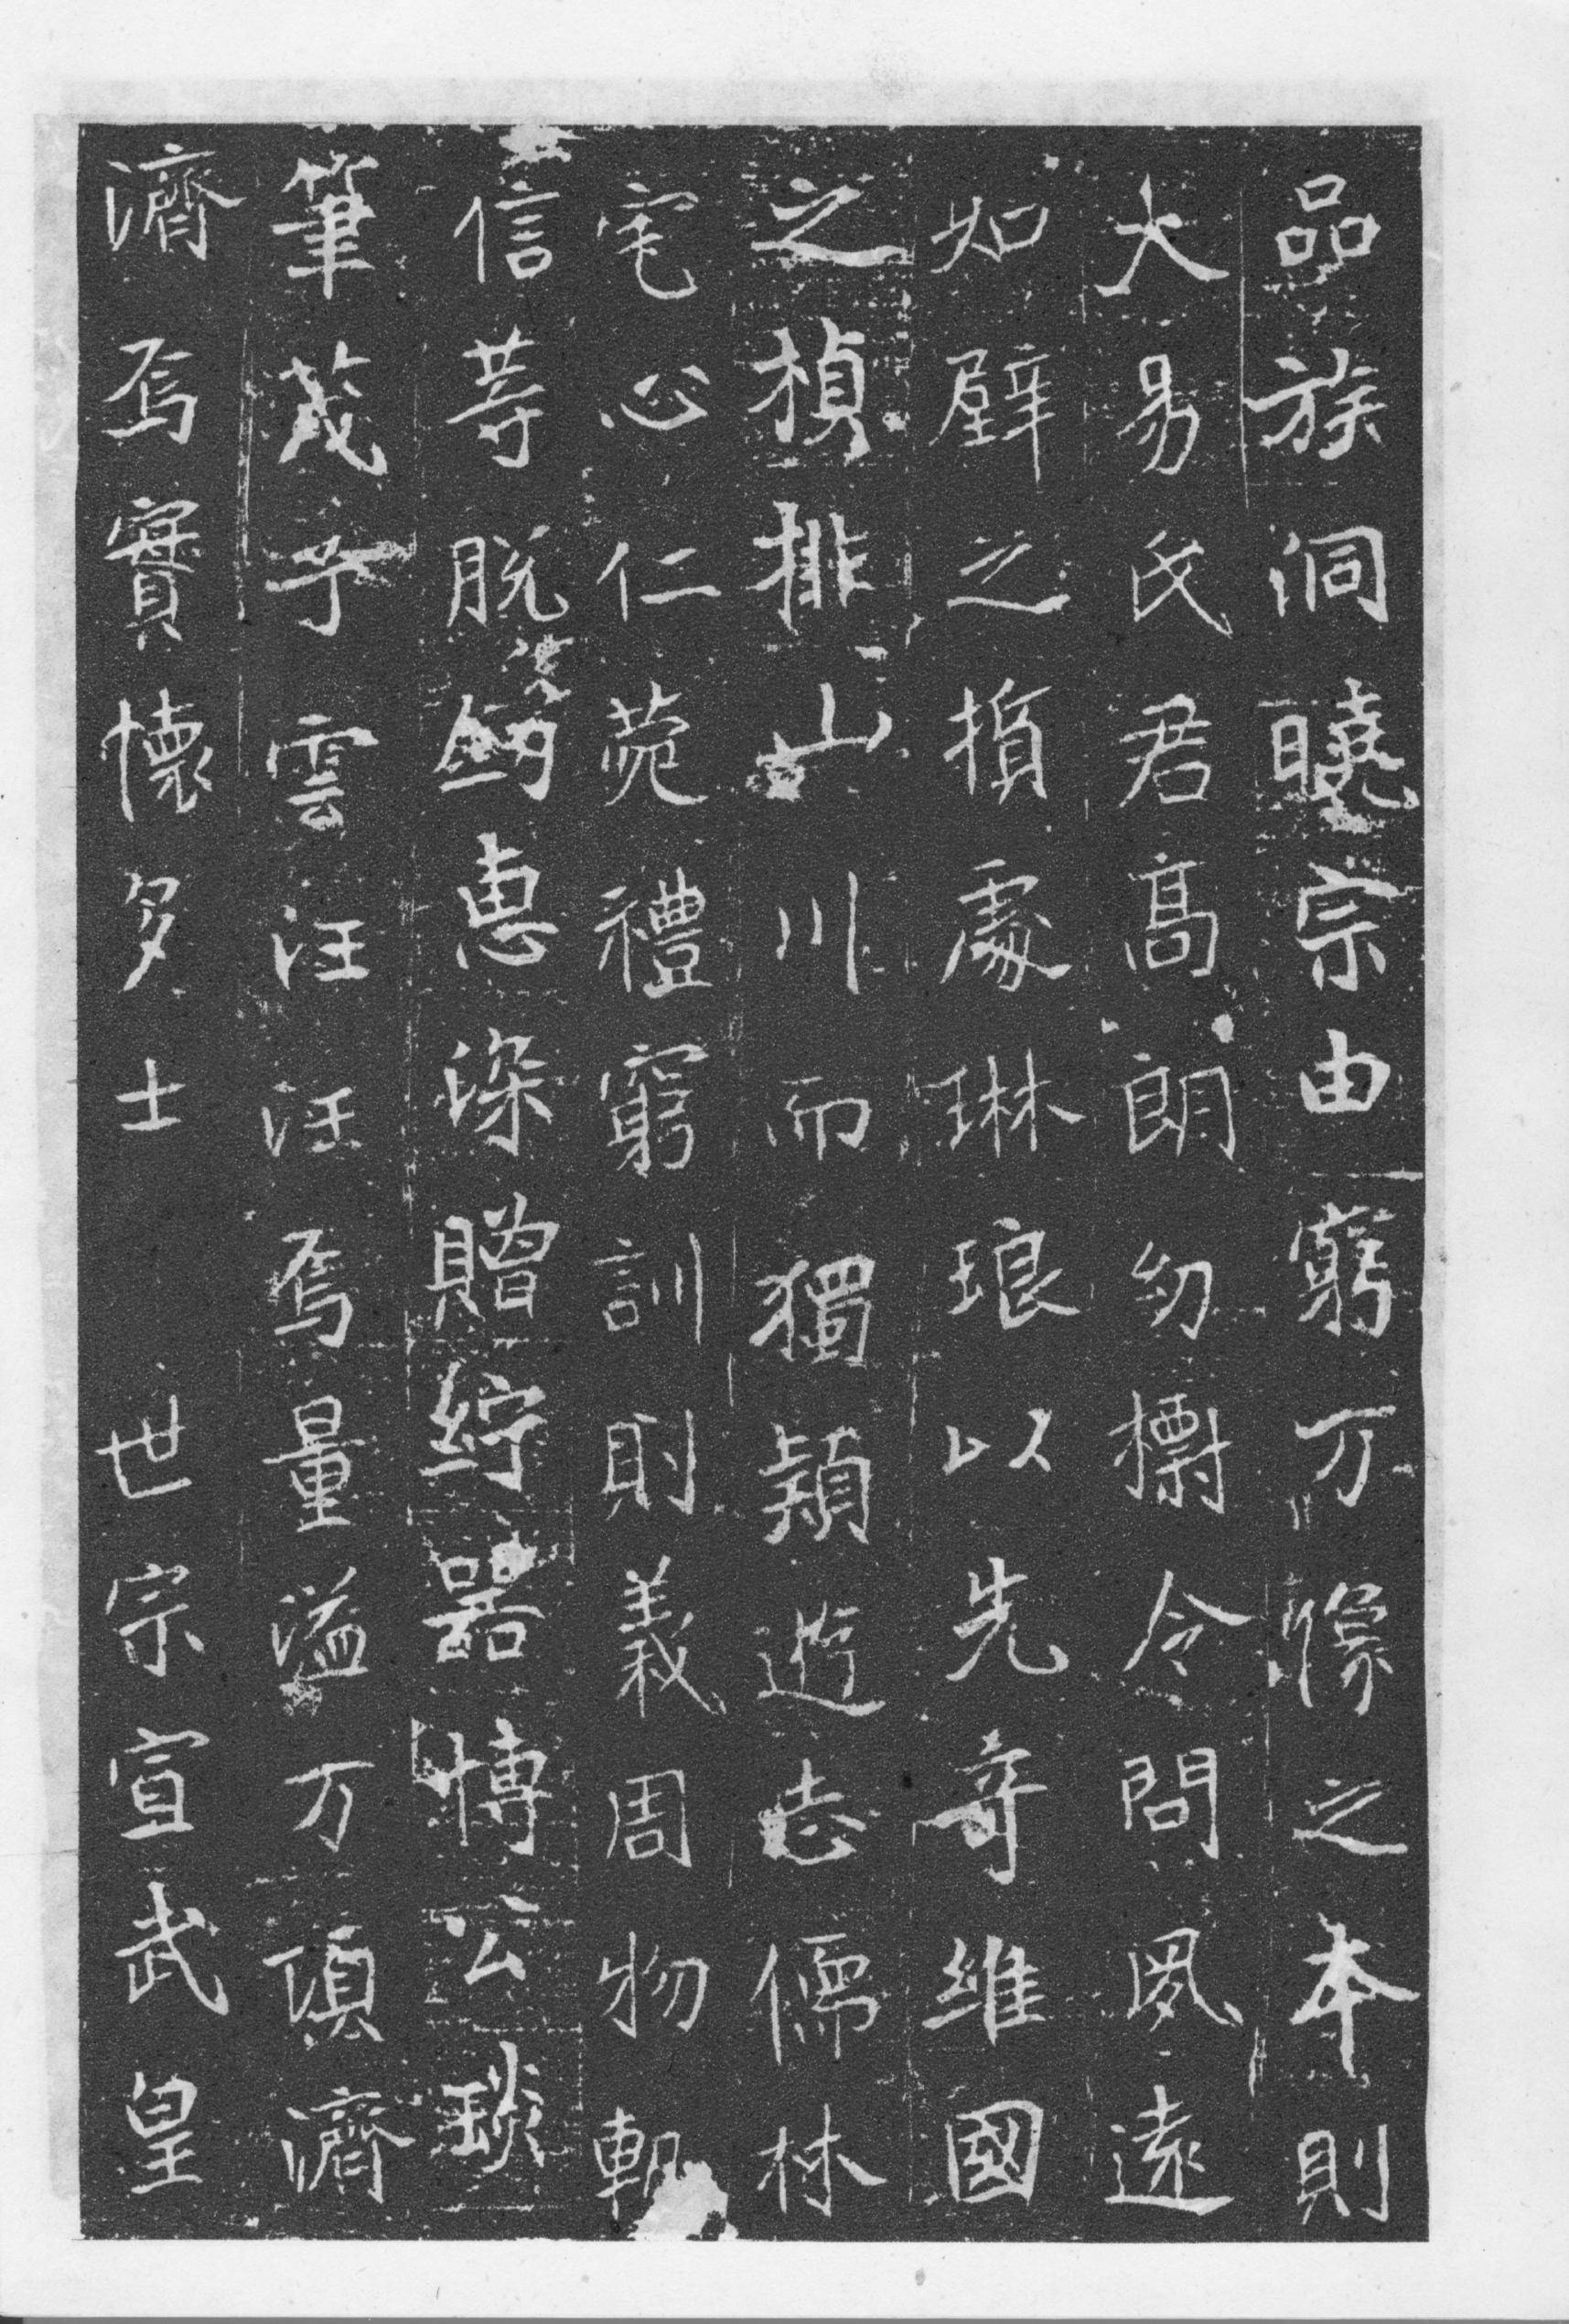 品族洞曉宗由窮万像之本則
大易氏君高朗幼摽令問夙遠
如璧之損處琳琅以先奇維國
之楨排山川而獨穎遊志儒林
宅心仁菀禮窮訓則義周物軌
信等脫劒惠深贈紵器博公琰
筆茂子雲汪汪焉量溢万頃濟
濟焉實懷多士　世宗宣武皇